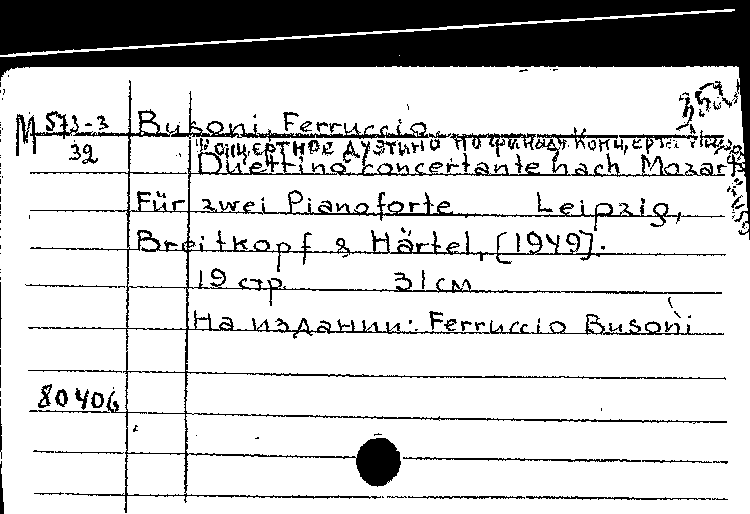 М 573-3
32
Busoni, Ferruccio
Концертное дуэтино по финалу Концерта
Duettino concertante nach Mozart
Für zwei Pianoforte Leipzig,
Breitkopf & Härtel, [1949].
19 стр 31 см
На издании: Ferruccio Busoni
80406